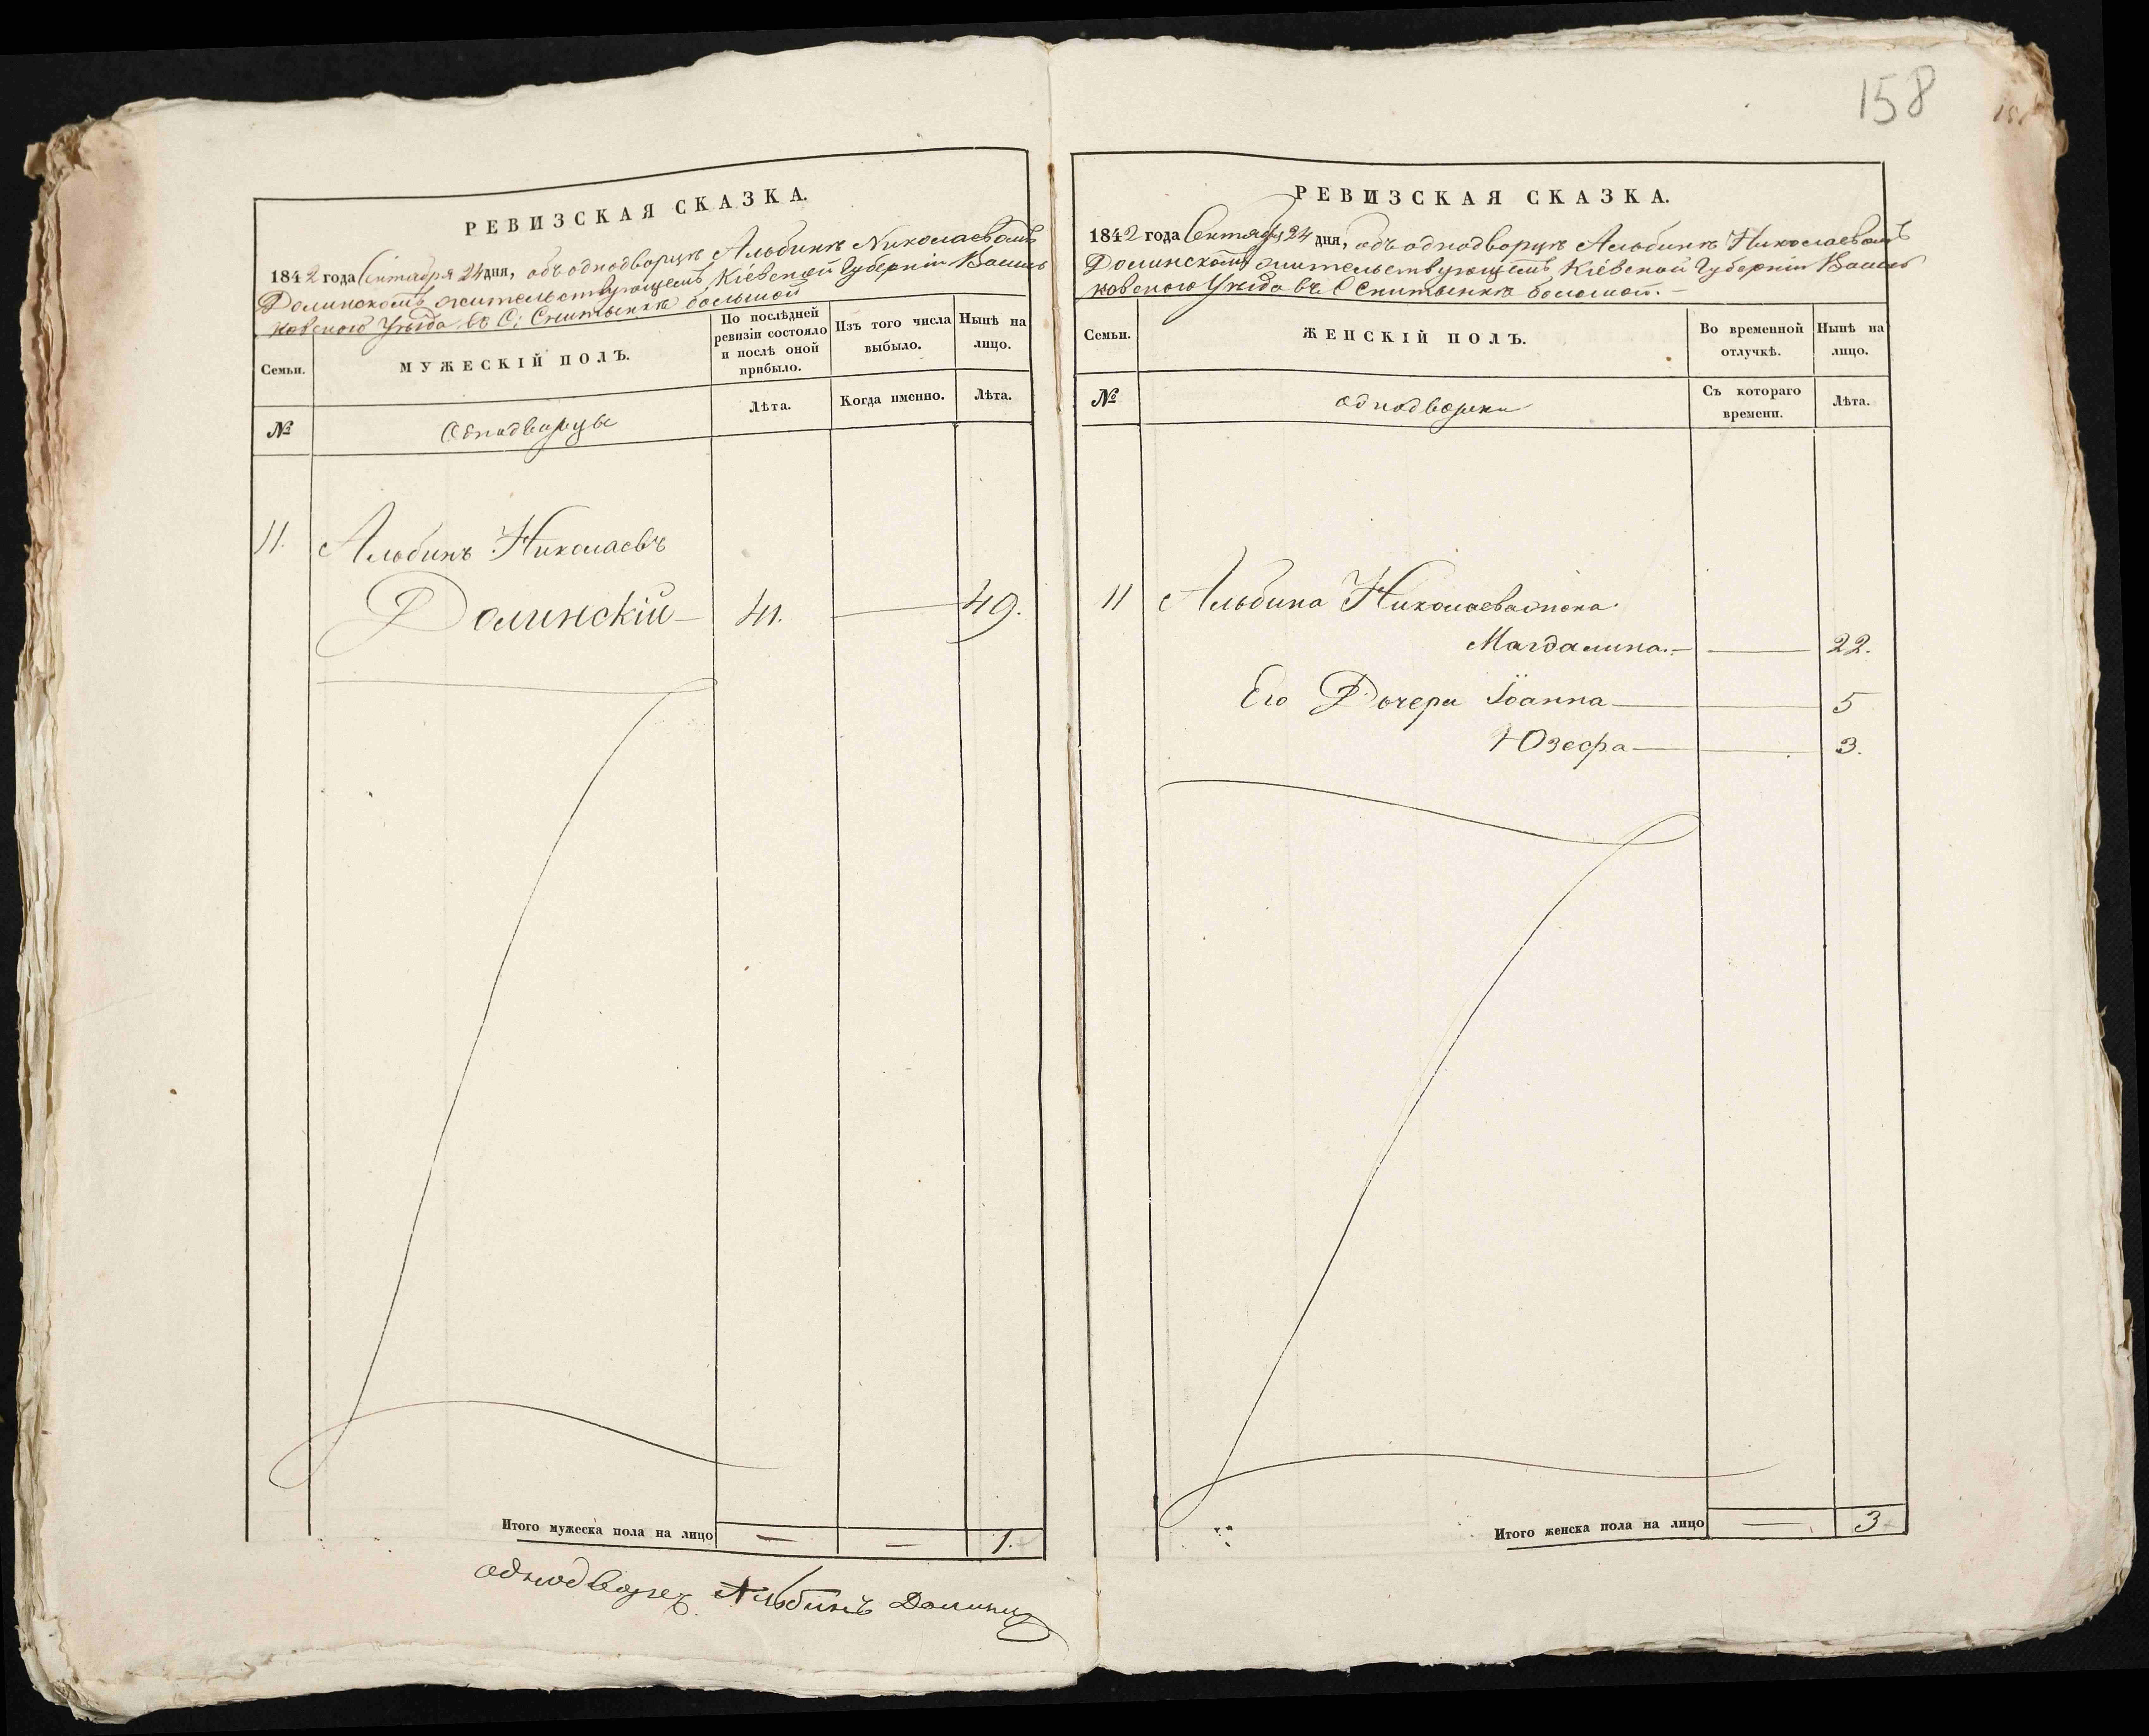 158
РЕВИЗСКАЯ СКАЗКА.
1842 года Сентября 24 дня, объ однодворцѣ Альбинѣ Николаевомъ
Долинскомъ жительствующемъ Кіевской Губерніи Василь
ковскаго Уѣзда въ С: Снитынкѣ большой
Семьи.
МУЖЕСКІЙ ПОЛЪ.
По послѣдней
ревизіи состояло
и послѣ оной
прибыло.
Изъ того числа
выбыло.
Нынѣ на
лицо.
№
Однодворцы
Лѣта.
Когда именно.
Лѣта.
11. Альбинъ Николаевъ
Долинскій — 41. — 49.
Итого мужеска пола на лицо — — 1.
однодворец Альбинъ
РЕВИЗСКАЯ СКАЗКА.
1842 года Сентября 24 дня, объ однодворцѣ Альбинѣ Николаевомъ
Долинскомъ жительствующемъ Кіевской Губерніи Василь
ковского Уѣзда въ С Снитынкѣ большой. —
Семьи.
ЖЕНСКІЙ ПОЛЪ.
Во временной
отлучкѣ.
Нынѣ на
лицо.
№
однодворки
Съ котораго
времени.
Лѣта.
11 Альбина Николаева жена
Магдалина. — — 22.
Его Дочери Іоанна — — 5
Юзефа — — 3.
Итого женска пола на лицо — 3